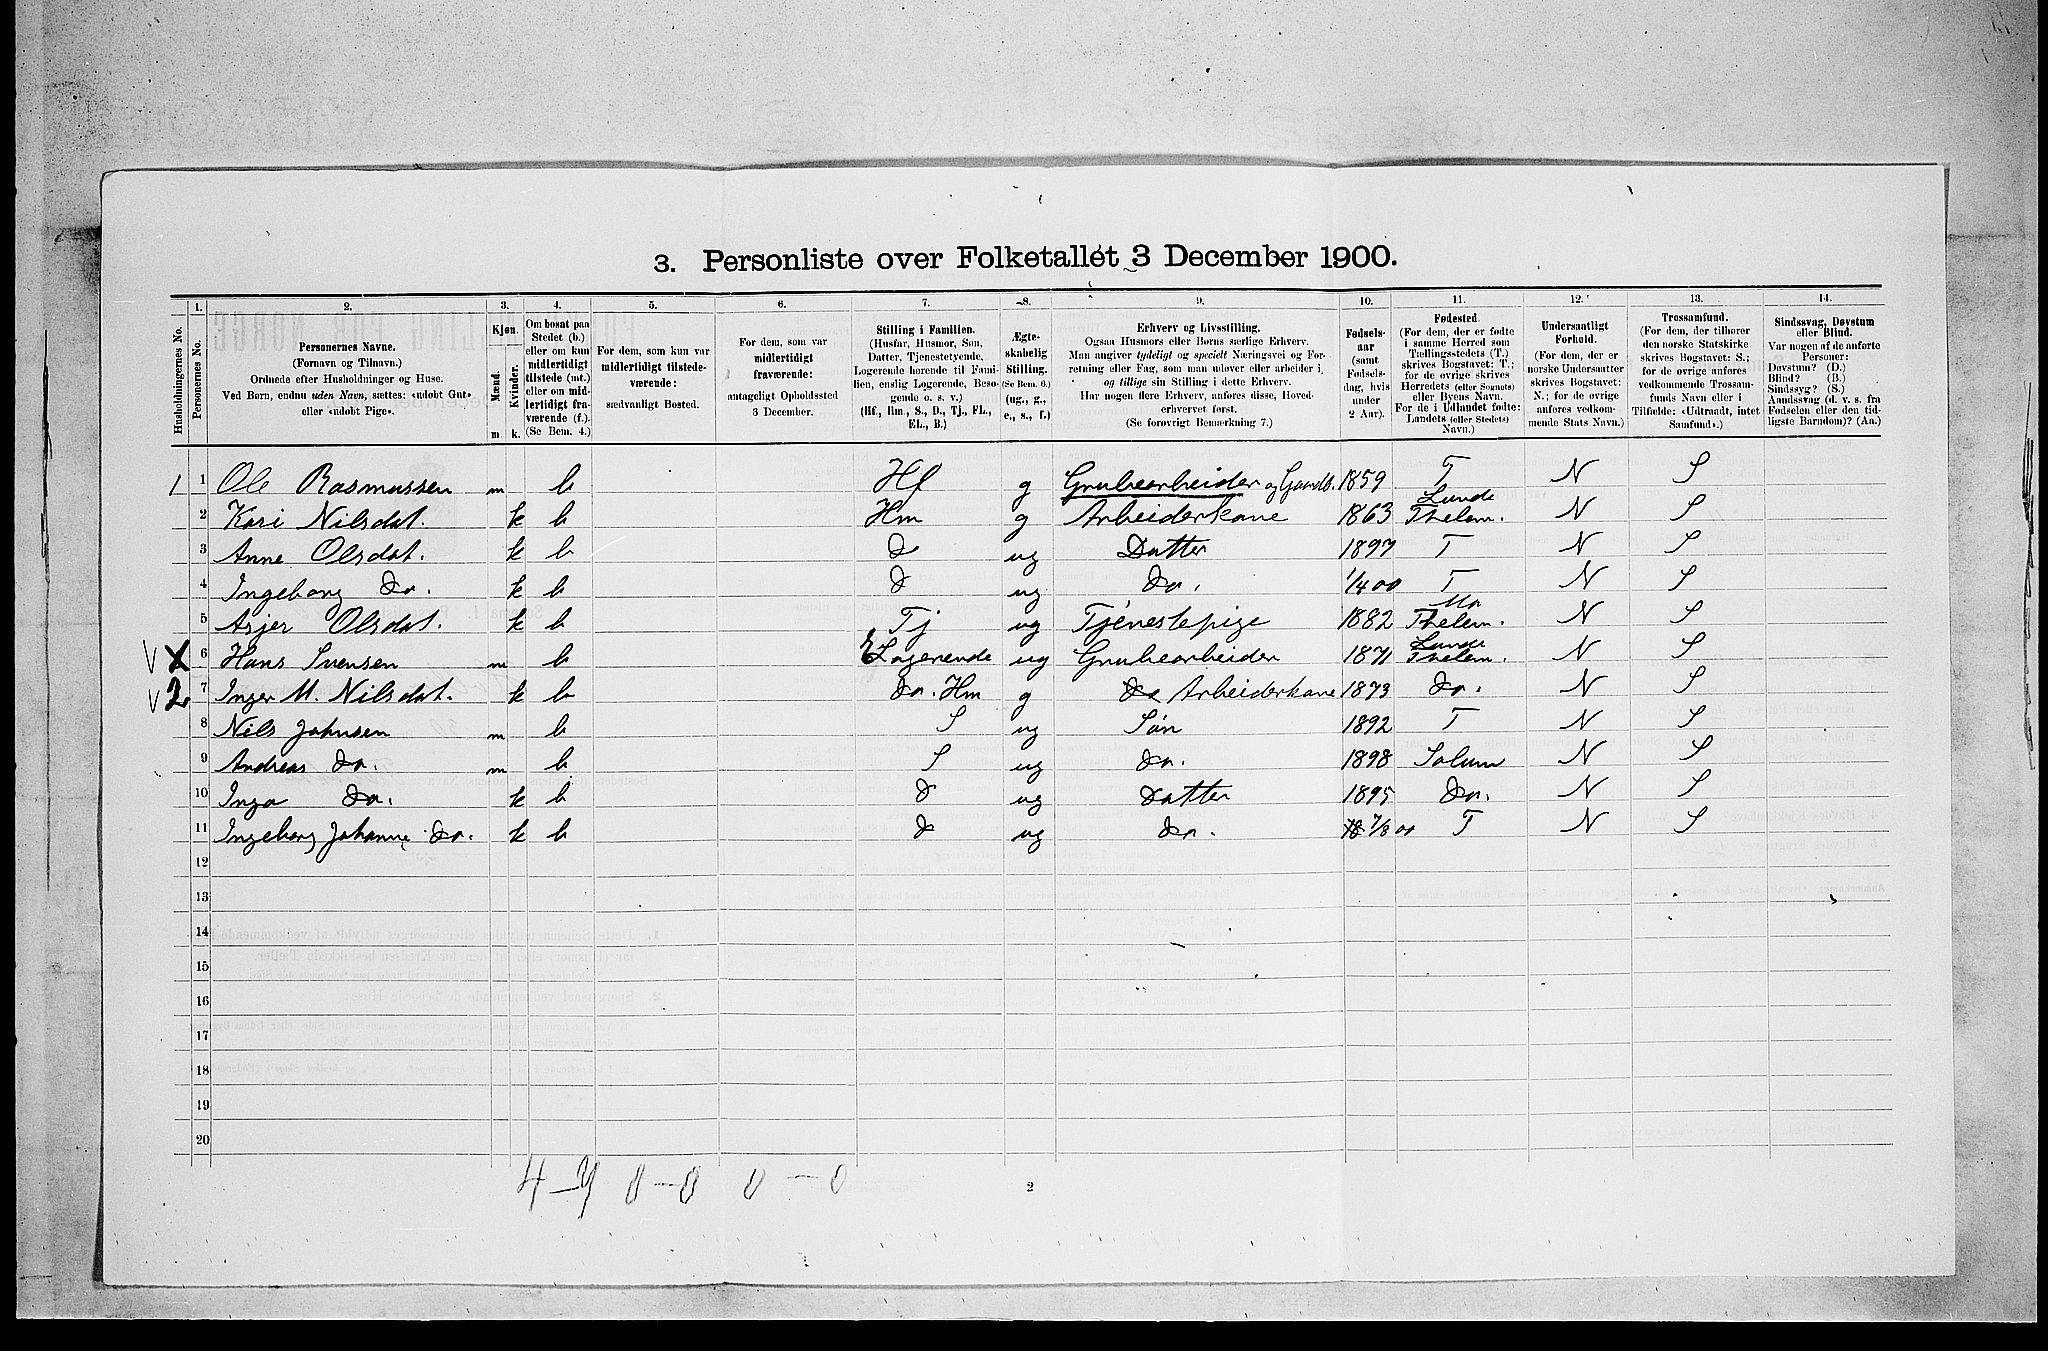 3. Personliste over Folketallet 3 December 1900.
1. 2. 3. 4. 5. 6. 7. 8. 9. 10. 11. 12. 13. 14.
Husholdningernes No.
Personernes No.
Personernes Navne.
(Fornavn og Tilnavn.)
Ordnede efter Husholdninger og Huse.
Ved Børn, endnu uden Navn, sættes: «udobt Gut»
eller «udobt Pige».
Kjøn.
Mænd.
Kvinder.
m. k.
Om bosat paa
Stedet (b.)
eller om kun
midlertidigt
tilstede (mt.)
eller om mid-
lertidigt fra-
værende (f.).
(Se Bem. 4.)
For dem, som kun var
midlertidigt tilstede-
værende:
sædvanligt Bosted.
For dem, som var
midlertidigt
fraværende:
antageligt Opholdssted
3 December.
Stilling i Familien.
(Husfar, Husmor, Søn,
Datter, Tjenestetyende,
Logerende hørende til Fami-
lien, enslig Logerende, Besø-
gende o. s. v.)
(Hf., Hm., S., D., Tj., FL.,
EL., B.)
Ægte-
skabelig
Stilling.
(Se Bem. 6.)
(ug., g.,
e., s., f.)
Erhverv og Livsstilling.
Ogsaa Husmors eller Børns særlige Erhverv.
Man angiver tydeligt og specielt Næringsvei og For-
retning eller Fag, som man udøver eller arbeider i,
og tillige sin Stilling i dette Erhverv.
Har nogen flere Erhverv, anføres disse, Hoved-
erhvervet først.
(Se forøvrigt Bemærkning 7.)
Fødsels-
aar
(samt
Fødsels-
dag, hvis
under
2 Aar).
Fødested.
(For dem, der er fødte
i samme Herred som
Tællingsstedets (T.)
skrives Bogstavet: T.;
for de øvrige skrives
Herredets (eller Sognets)
eller Byens Navn.
For de i Udlandet fødte:
Landets (eller Stedets)
Navn.)
Undersaatligt
Forhold.
(For dem, der er
norske Undersaatter
skrives Bogstavet:
N.; for de øvrige
anføres vedkom-
mende Stats Navn.)
Trossamfund.
(For dem, der tilhører
den norske Statskirke
skrives Bogstavet: S.;
for de øvrige anføres
vedkommende Trossam-
funds Navn eller i
Tilfælde: «Udtraadt, intet
Samfund».)
Sindssvag, Døvstum
eller Blind.
Var nogen af de anførte
Personer:
Døvstum? (D.)
Blind? (B.)
Sindssyg? (S.)
Aandssvag (d. v. s. fra
Fødselen eller den tid-
ligste Barndom)? (Aa.)
1 1 Ole Rasmussen m b Hf g Grubearbeider og Gaardb. 1859 T N S
2 Kari Nilsdat. k b Hm g Arbeiderkone 1863 Lunde Thelem. N S
3 Anne Olsdat. k b D ug Datter 1897 T N S
4 Ingeborg Do. k b D ug Do. 1/4 00 T N S
5 Asjer Olsdat. k b Tj ug Tjenestepige 1882 Thelem. N S
6 Hans Svensen m b Logerende ug Grubearbeider 1871 Lunde Thelem. N S
2 7 Inger M. Nilsdat. k b Do. Hm g Do Arbeiderkone 1873 Do. N S
8 Nils Johnsen m b S ug Søn 1892 T N S
9 Andreas Do. m b S ug Do. 1898 Solum N S
10 Inga Do. k b D ug Datter 1895 Do. N S
11 Ingeborg Johanne Do. k b D ug Do. 7/8 00 T N S
12
13
14
15
16
17
18
19
20
4 – 7 0 – 0 0 – 0
2